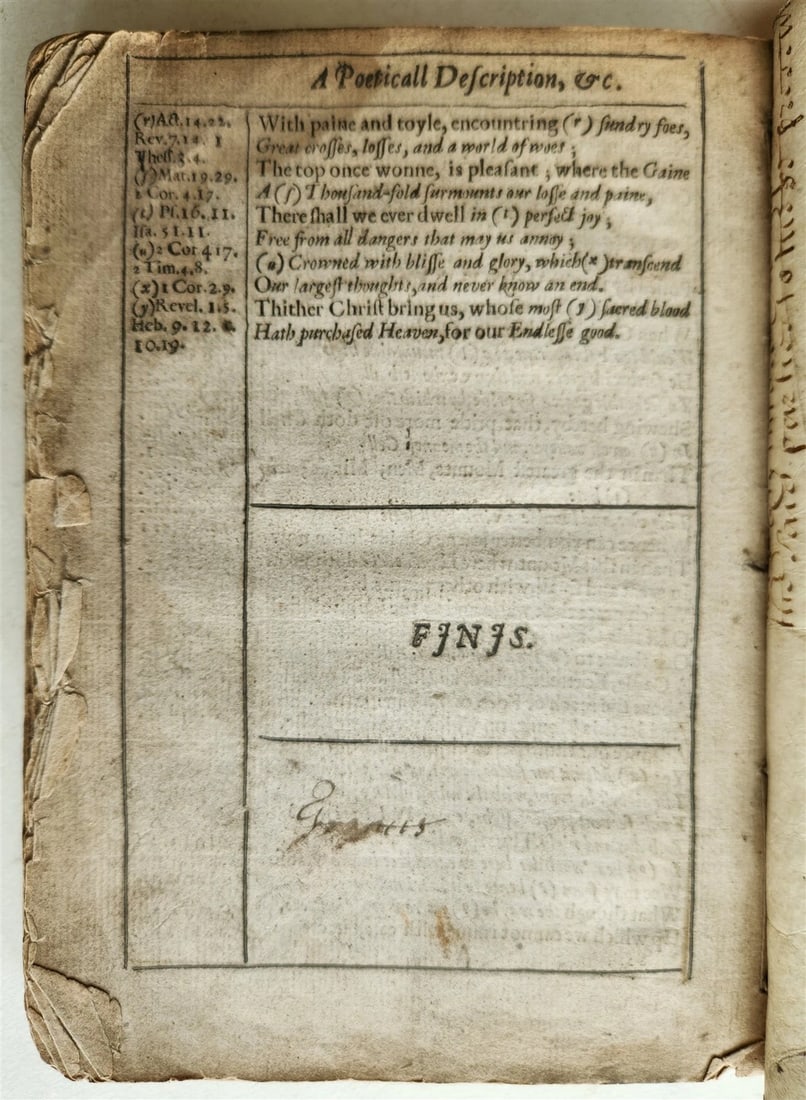 A Poeticall Deſcription, &c.
(r) Act. 14.22.
Rev. 7.14. 1
Theſſ. 3.4.
(ſ) Mat. 19.29.
2 Cor. 4.17.
(t) Pſ. 16. 11.
Iſa. 51.11.
(u) 2 Cor 4 17.
2 Tim. 4.8.
(x) 1 Cor. 2.9.
(y) Revel. 1.5.
Heb. 9. 12. &
10.19.
With paine and toyle, encountring (r) ſundry foes,
Great croſſes, loſſes, and a world of woes;
The top once wonne, is pleaſant; where the Gaine
A (ſ) Thouſand-fold ſurmounts our loſſe and paine,
There ſhall we ever dwell in (t) perfect joy;
Free from all dangers that may us annoy;
(u) Crowned with bliſſe and glory, which (x) tranſcend
Our largeſt thoughts, and never know an end.
Thither Chriſt bring us, whoſe moſt (y) ſacred blood
Hath purchaſed Heaven, for our Endleſſe good.
FINIS.